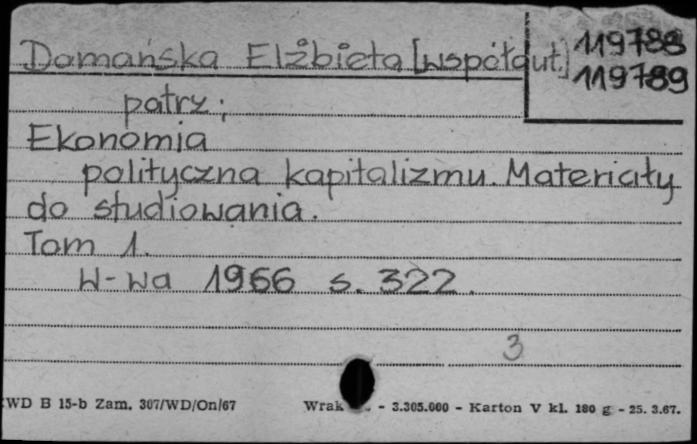 Domańska Elżbieta [współaut.] 119788
119789
patrz;
Ekonomia
polityczna kapitalizmu. Materiały
do studiowania.
Tom 1.
W-wa 1966 s. 322.
3
WD B 15-b Zam. 307/WD/On/67 Wrak - 3.305.000 - Karton V kl. 180 g - 25. 3.67.